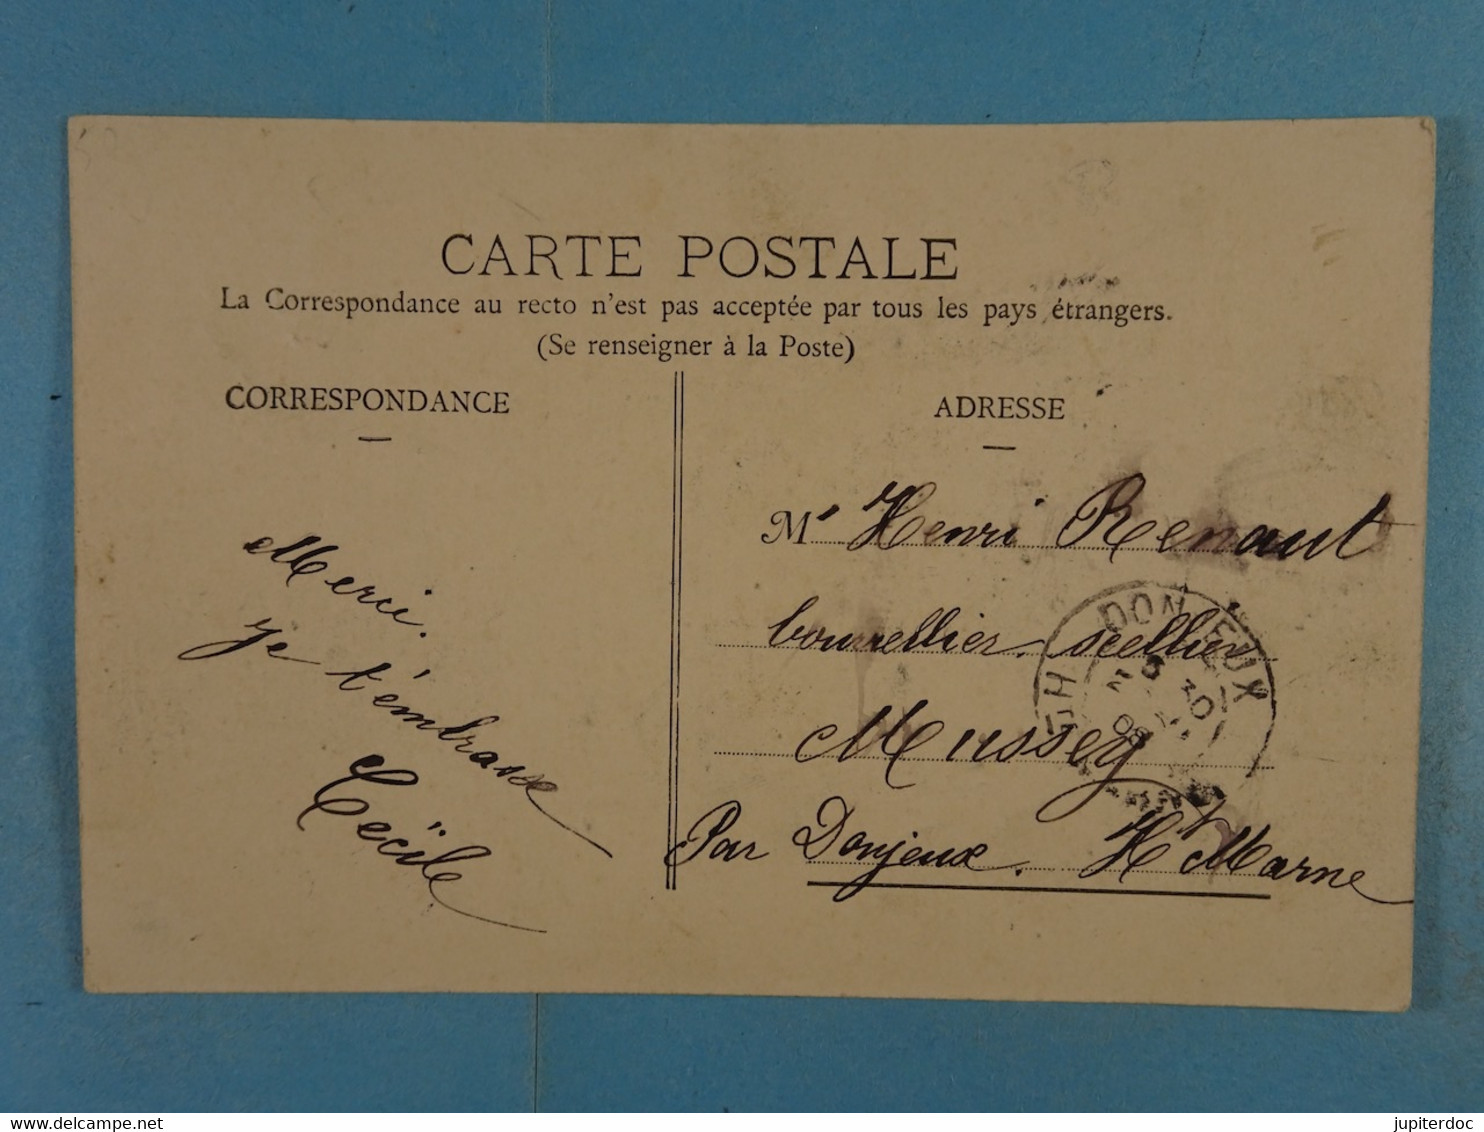 CARTE POSTALE
La Correspondance au recto n'est pas acceptée par tous les pays étrangers.
(Se renseigner à la Poste)
CORRESPONDANCE
ADRESSE
Merci.
Je t'embrasse
Cecile
Mr Henri Renaut
bourrellier sellier
Mussey
Par Donjeux. Hte Marne
DONJEUX
delcampe.net
jupiterdoc